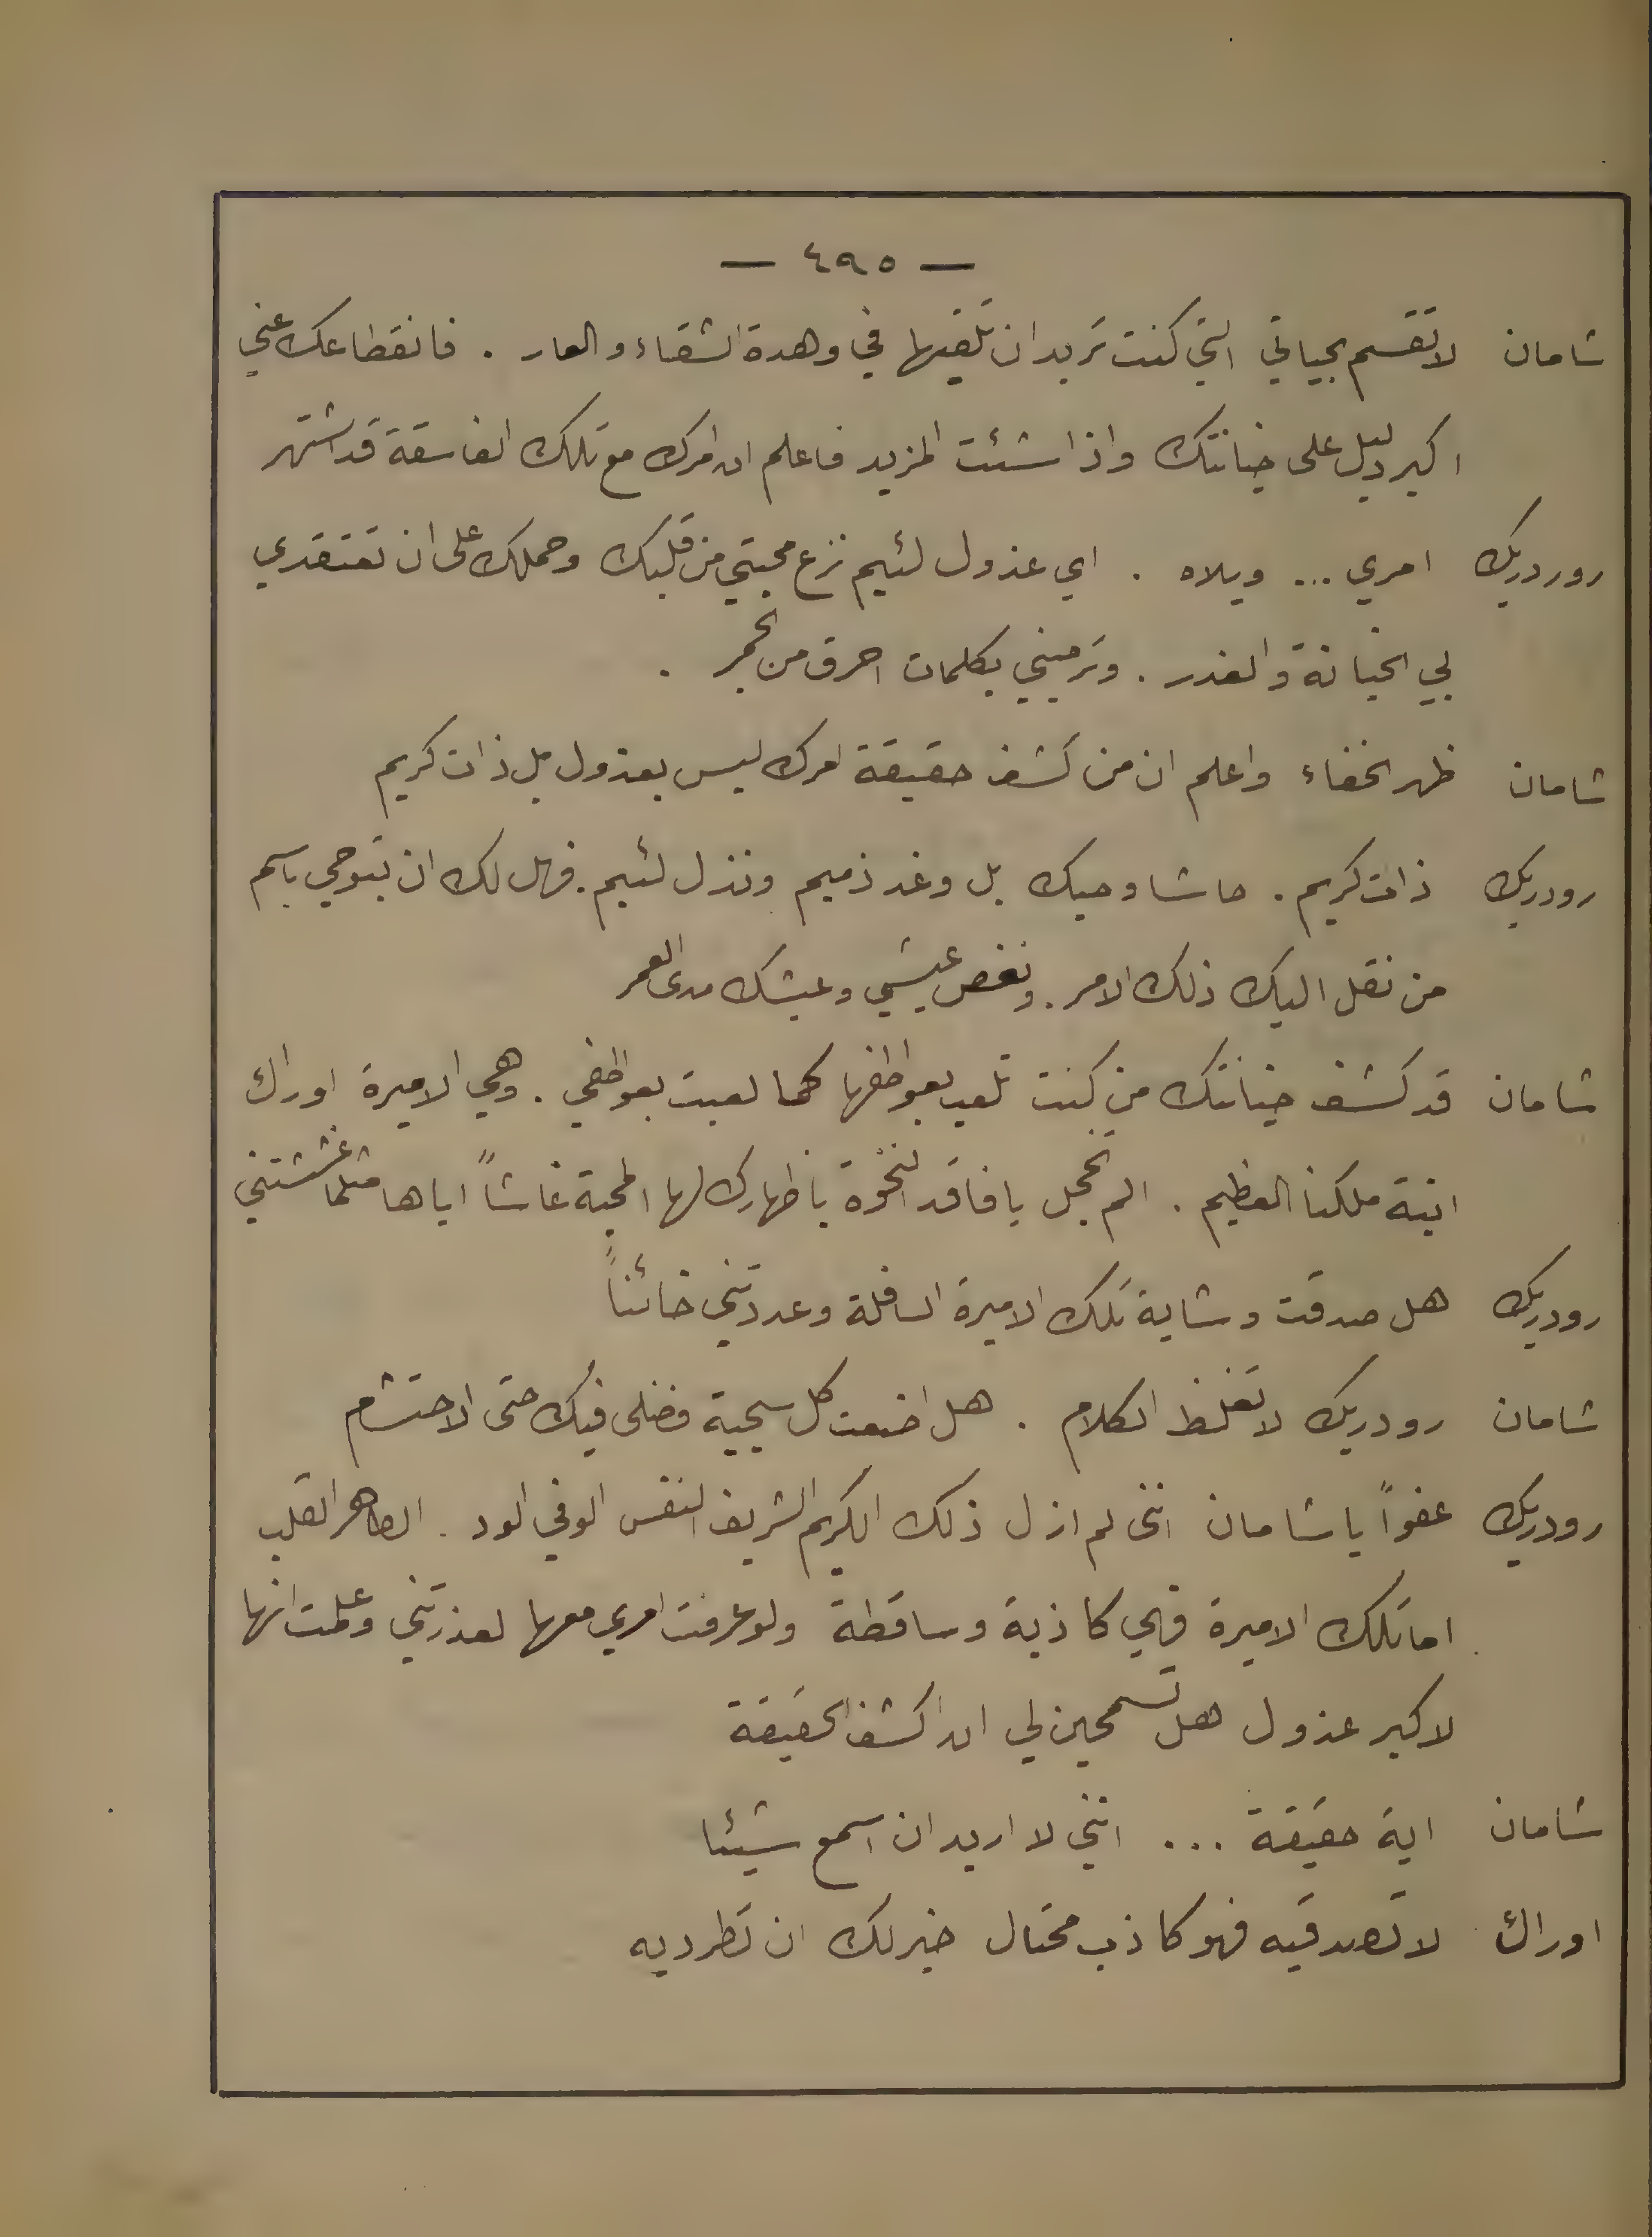 — ٤٩٥ —
شامان لا تقسم بحياتي التي كنت تريد ان تلقيها في وهدة الشقاء والعار . فانقطاعك عني
اكبر دليل على خيانتك واذا شئت المزيد فاعلم ان امرك مع تلك الفاسقة قد اشتهر
روردريك امري ... ويلاه . اي عذول لئيم نزع محبتي من قلبك وحملك على ان تعتقدي
بي الخيانة والغدر . وترميني بكلمات احرق من الجمر .
شامان ظهر الخفاء واعلم ان من كشف حقيقة امرك ليس بعذول بل ذات كريم
رودريك ذات كريم . حاشا وحبك بل وغد ذميم ونذل لئيم . فهل لك ان تبوحي باسم
من نقل اليك ذلك الامر . ونغص عيشي وعيشك مدى العمر
شامان قد كشف خيانتك من كنت تلعب بعواطفها كما لعبت بعواطفي . وهي الاميرة اوراك
ابنة ملكنا العظيم . الم تخجل يا فاقد النخوة باظهارك لها المحبة غاشاً اياها مثلما غششتني
رودريك هل صدقت وشاية تلك الاميرة السافلة وعددتني خائناً
شامان رودريك لا تغلظ الكلام . هل اضعت كل سجية فضلى فيك حتى الاحتشام
رودريك عفواً يا شامان انني لم ازل ذلك الكريم الشريف النفس الوفي الود . الطاهر القلب
اما تلك الاميرة فهي كاذبة وساقطة ولو عرفت امري معها لعذرتني وعلمت انها
لاكبر عذول هل تسمحين لي ان اكشف الحقيقة
شامان اية حقيقة ... انني لا اريد ان اسمع شيئا
اوراك لا تصدقيه فهو كاذب محتال خير لك ان تطرديه